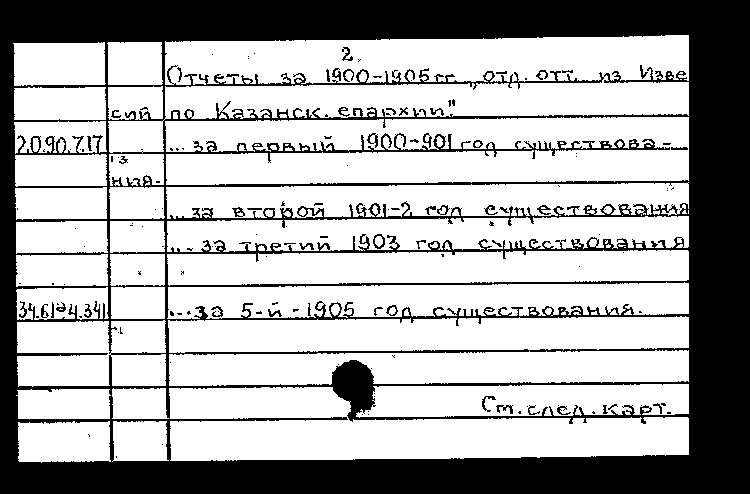 2.
Отчеты за 1900-1905 гг. „отд. отт. из Изве
сий по Казанск. епархии".
20.90.7.17 ... за первый 1900-901 год существова-
ния.
... за второй 1901-2 год существования
... за третий 1903 год существования
34.61 4.341 ... за 5-й - 1905 год существования.
См. след. карт.